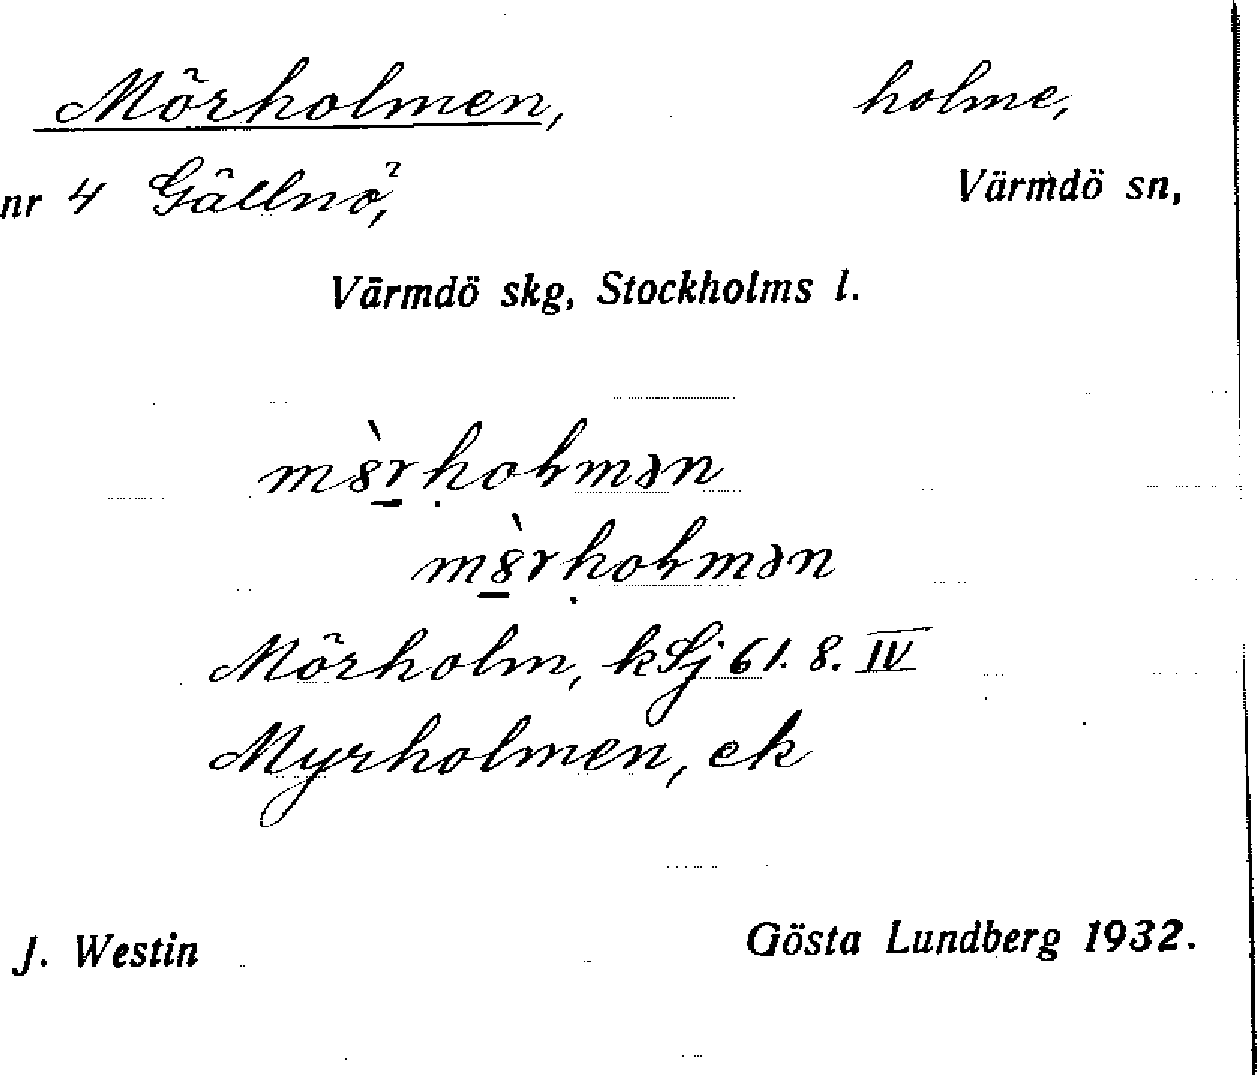 Mörholmen, holme,
nr 4 Gällnö, Värmdö sn,
Värmdö skg, Stockholms l.
Mörholm, kSj 61. 8. IV
Myrholmen, ek
J. Westin Gösta Lundberg 1932.